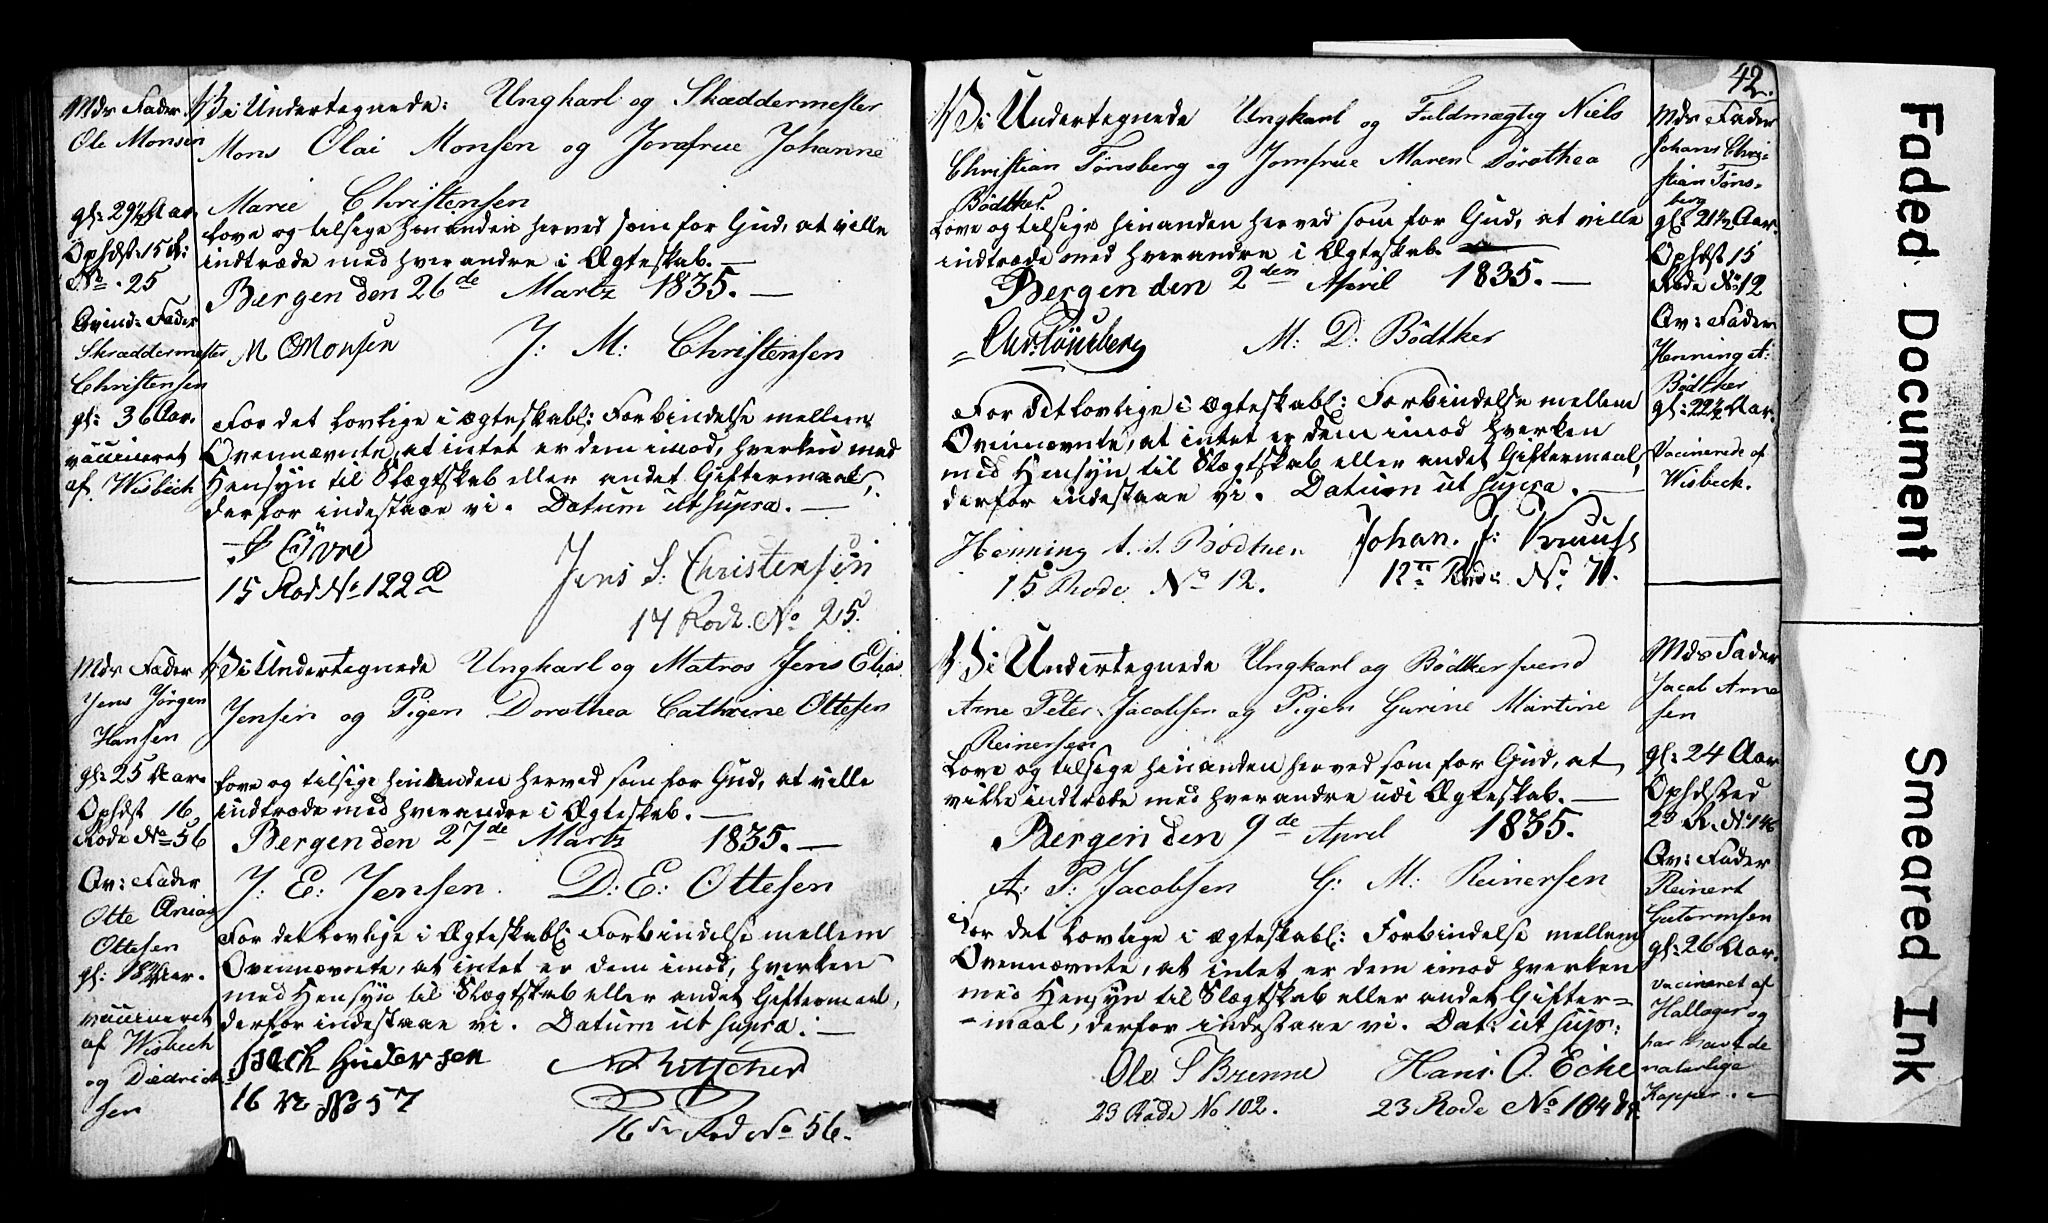 Mds Fader
Ole Monsen
gl: 29½ Aar.
Ophdst: 15 R:
No. 25
Qvind: Fader
Skræddermester
Christensen
gl: 36 Aar.
vaccineret
af Wisbech
Vi Undertegnede: Ungkarl og Skræddermester
Mons Olai Monsen og Jomfrue Johanne
Marie Christensen
love og tilsige hinanden herved som for Gud, at ville
indtræde med hverandre i Ægteskab. —
Bergen den 26de Martz 1835. —
M O Monsen J: M: Christensen
For det lovlige i ægteskabl: Forbindelse mellem
Ovennævnte, at intet er dem imod, hverken med
Hensyn til Slægtskab eller andet Giftermaal,
derfor indestaae vi. Datum ut supra. —
Jens S. Christensen
15 Rod No 122
17 Rode No 25.
Mds Fader
Jens Jørgen
Hansen
gl: 25 Aar.
Ophdst 16
Rode No 56
Qv: Fader
Otte
Ottesen
gl: 18½ Aar.
vaccineret
af Wisbech
og Diedrich
sen
Vi Undertegnede Ungkarl og Matros Jens Elias
Jensen og Pigen Dorothea Cathrine Ottesen
love og tilsige hinanden herved som for Gud, at ville
indtræde med hverandre i Ægteskab. —
Bergen den 27de Martz 1835. —
J: E: Jensen. D: E: Ottesen
For det lovlige i Ægteskabl: Forbindelse mellem
Ovennævnte, at intet er dem imod, hverken
med Hensyn til Slægtskab eller andet Giftermaal,
derfor indestaae vi. Datum ut supra. —
16 R No 57
16de Rode No 56.
42.
Vi Undertegnede Ungkarl og Fuldmægtig Niels
Christian Tønsberg og Jomfrue Maren Dorothea
Bødtker
love og tilsige hinanden herved som for Gud, at ville
indtræde med hverandre i Ægteskab.
Bergen den 2den April 1835. —
Chr: Tønsberg M: D: Bødtker
For det lovlige i Ægteskabl: Forbindelse mellem
Ovennævnte, at intet er dem imod hverken
med Hensyn til Slægtskab eller andet Giftermaal,
derfor indestaae vi. Datum ut supra. —
Henning A. S. Bødtker Johan. J: Krauss
15 Rode No 12. 12te Rode No 71.
Mds Fader
Johans Chri-
stian Tøns-
berg
gl: 21½ Aar.
Ophdst 15
Rode No 12
Qv: Fader
Henning A:
Bødtker
gl: 22½ Aar.
Vacinerede af
Wisbech.
Vi Undertegnede Ungkarl og Bødkersvend
Arne Peter Jacobsen og Pigen Gurine Martine
Reinersen
love og tilsige hinanden herved som for Gud, at
ville indtræde med hverandre udi Ægteskab. —
Bergen den 9de April 1835.
A: P: Jacobsen G: M: Reinersen
For det lovlige i ægteskabl: Forbindelse mellem
Ovennævnte, at intet er dem imod hverken
med Hensyn til Slægtskab eller andet Gifter=
=maal, derfor indestaae vi. Dat: ut sup:
Ole S Brenne Hans O. Eche
23 Rode No 102. 23 Rode No 104
Mds Fader
Jacob Arne
sen
gl: 24 Aar
Ophdsted
23 R. No 146
Qv: Fader
Reinert
Guttormsen
gl: 26 Aar.
vacineret af
Hallager og
har havt de
naturlige
Kopper. —
Faded Document
Smeared Ink